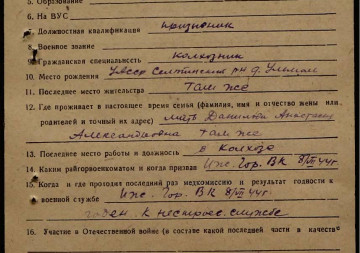 5. Образование
6. На ВУС
7. Должностная квалификация призывник
8. Военное звание
9. Гражданская специальность колхозник
10. Место рождения УАССР Селтинский рн д.
11. Последнее место жительства Там же
12. Где проживает в настоящее время семья (фамилия, имя и отчество жены или
родителей и точный их адрес) мать Данилова
Александровна там же
13. Последнее место работы и должность в колхозе
14. Каким райгорвоенкоматом и когда призван Иж. Гор. ВК 8/VIII 44 г.
15. Когда и где проходил последний раз медкомиссию и результат годности к
военной службе Иж. Гор. ВК 8/VIII 44 г.
годен к нестроев. службе
16. Участие в Отечественной войне (в составе какой последней части и в качестве